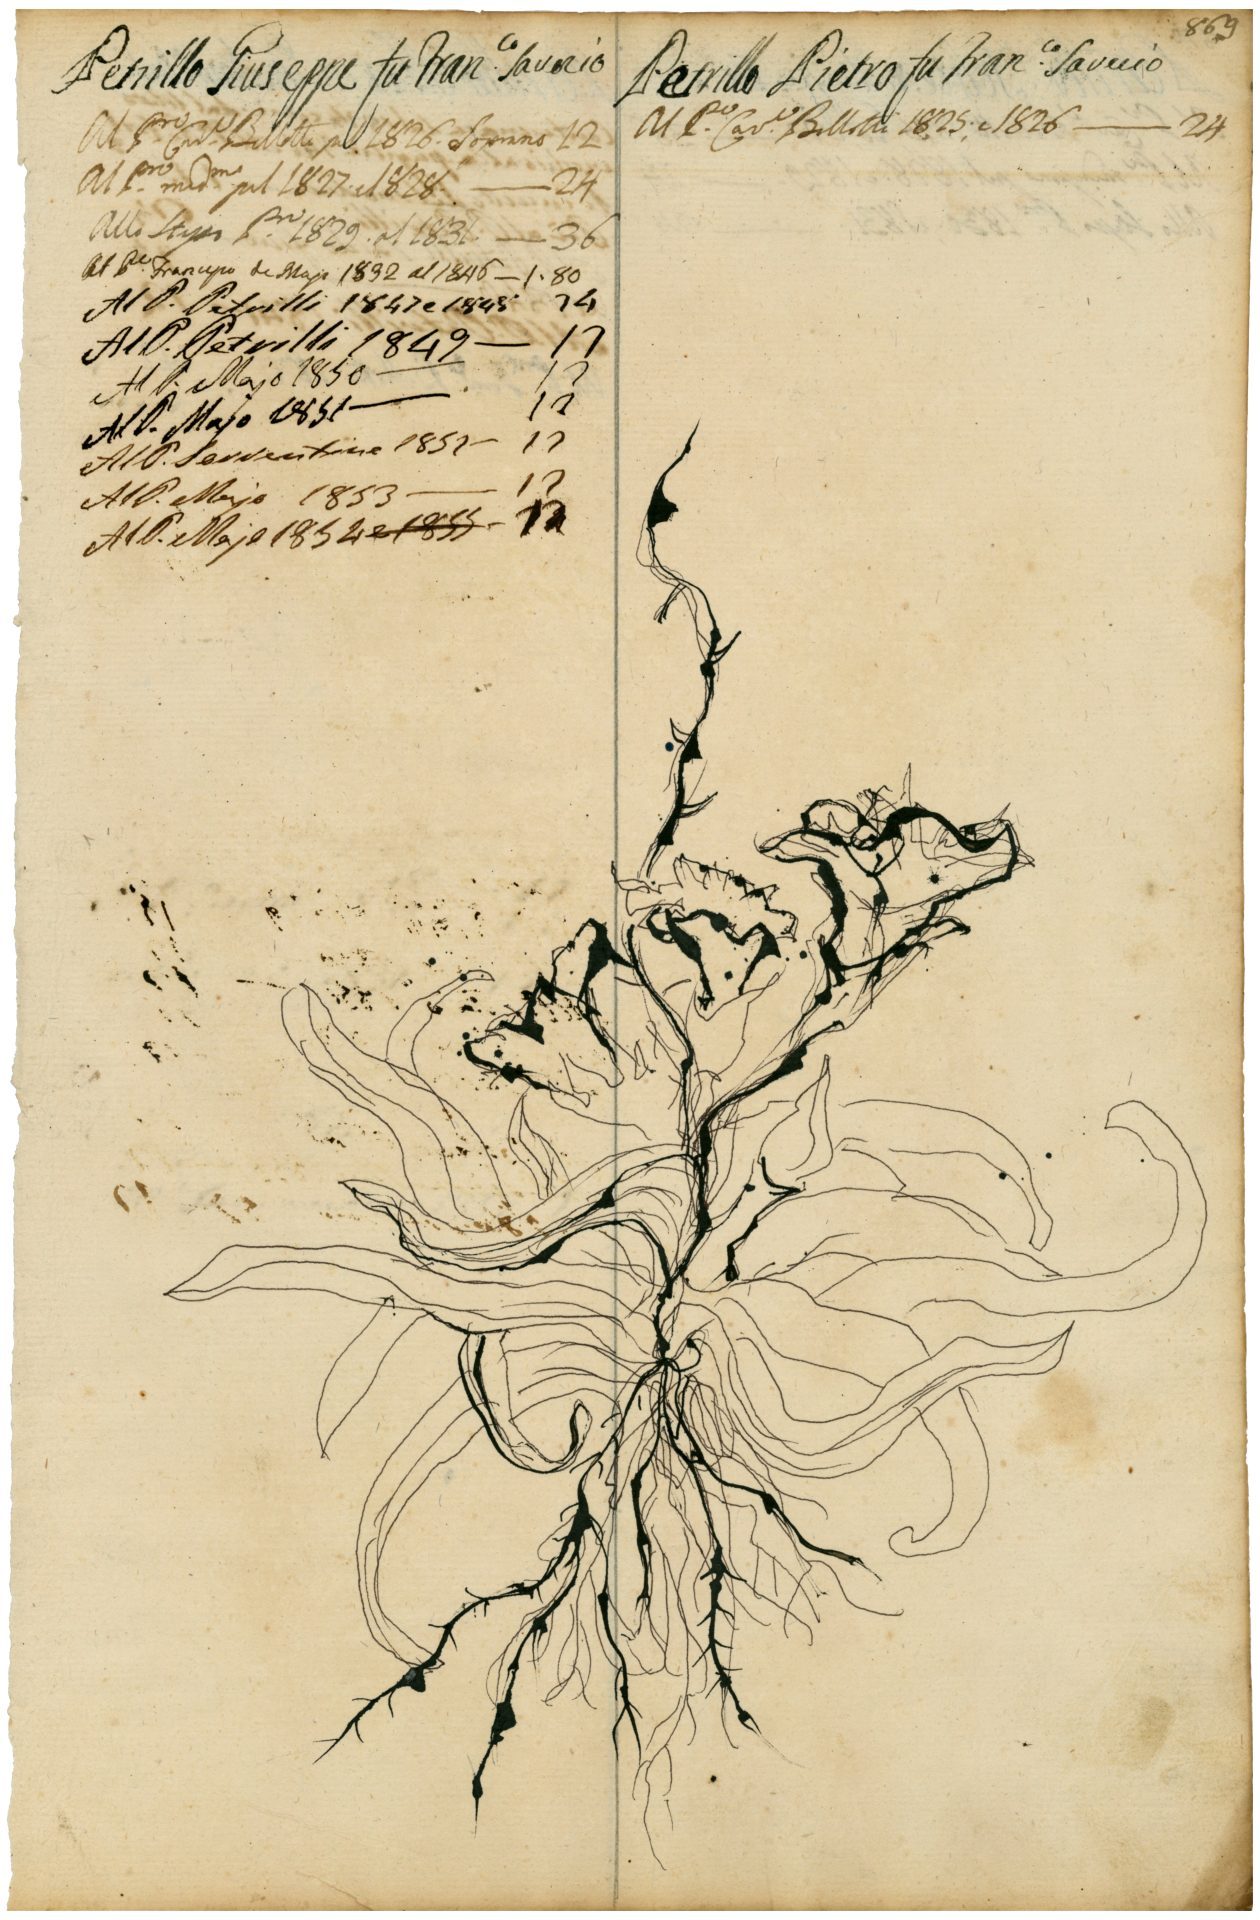 869
Petrillo Giuseppe fu Fran.co Saverio
Al P.ro Cav.e Bellotti pel 1826. 12
Al P.ro med.mo pel 1827. el 1828. — 24
Allo Stesso P.ro 1829. al 1831. — 36
Al P.re de Majo 1832 al 1846 — 1.80
Al P. Petrilli 1847 e 1848 24
Al P. Petrilli 1849 — 12
Al P. Majo 1850 — 12
Al P. Majo 1851 — 12
Al P. Serventine 1852 — 12
Al P. Majo 1853 — 12
Al P. Majo 1854 e 1855 - 12
Petrillo Pietro fu Fran.co Saverio
Al P.ro Cav.e Bellotti 1825. e 1826 — 24
12